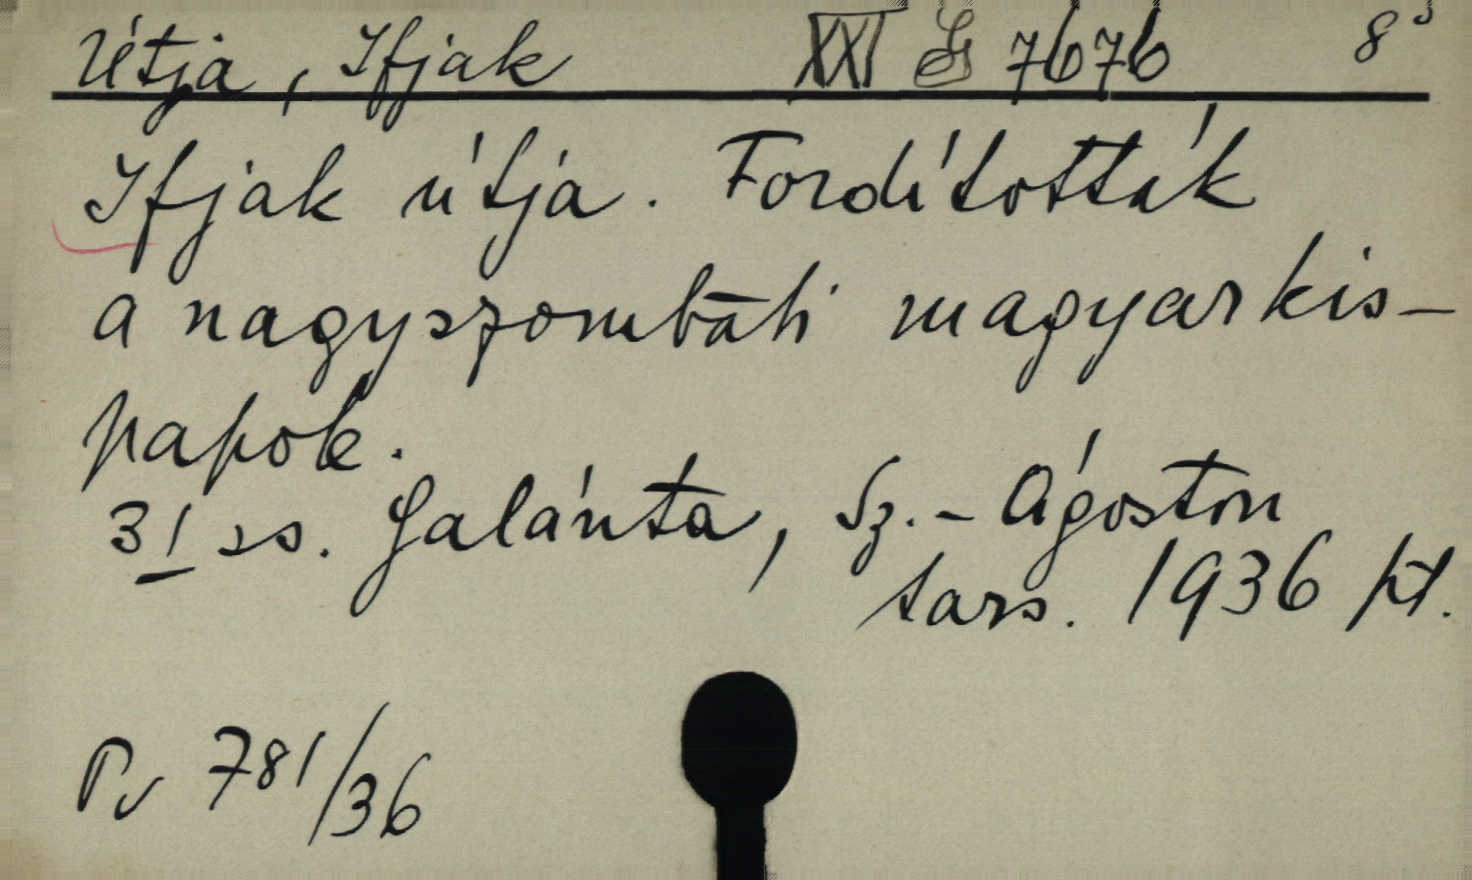 Útja, Ifjak XXI G 7676 8°
Ifjak útja. Fordították
a nagyszombati magyar kis-
papok.
31 ss. Galánta, Sz.-Ágoston
társ. 1936 kt.
Pv 781/36